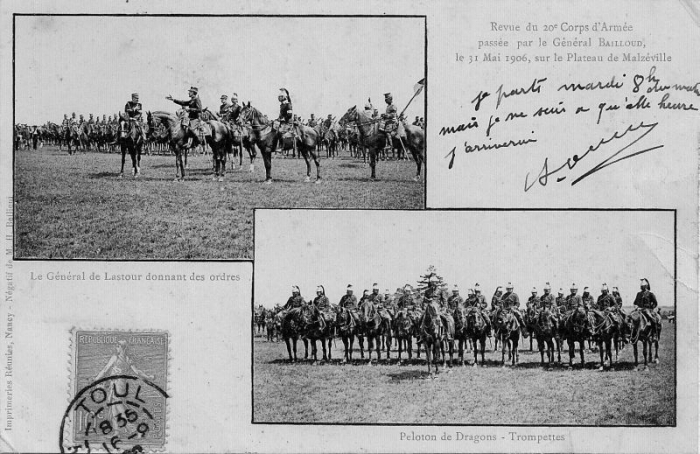 Revue du 20e Corps d'Armée
passée par le Général BAILLOUD,
le 31 Mai 1906, sur le Plateau de Malzéville
je parts mardi 8h du mat
mais je ne sais a qu'elle heure
j'arriverai
Le Général de Lastour donnant des ordres
Imprimeries Réunies, Nancy - Négatif de M. H. Bellieni
RÉPUBLIQUE FRANÇAISE
TOUL
8 55
16 -9
Peloton de Dragons - Trompettes